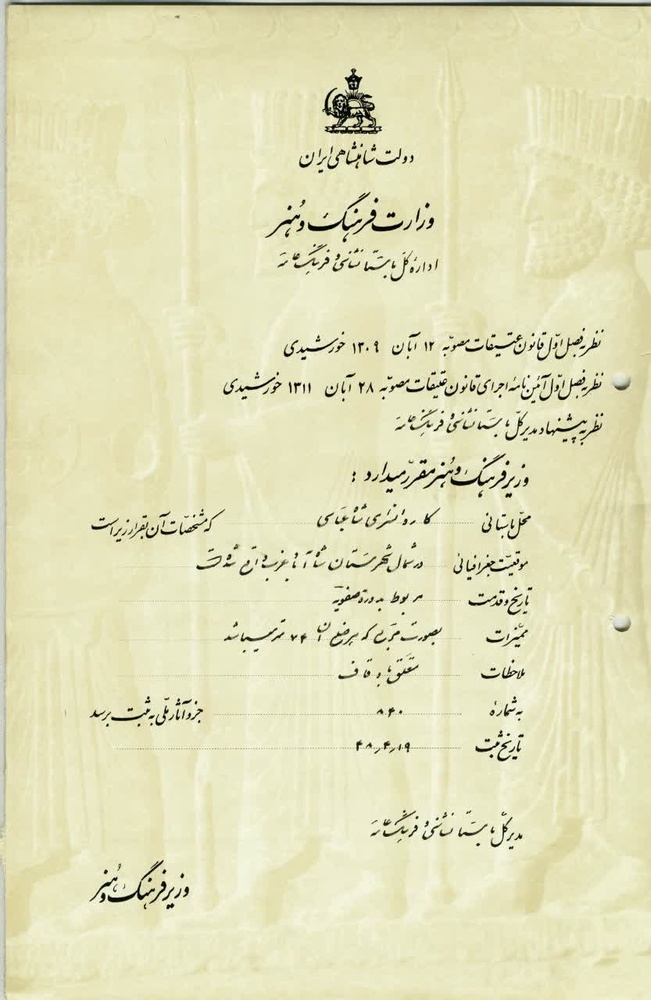 دولت شاهنشاهی ایران
وزارت فرهنگ و هنر
ادارهٔ کل باستانشناسی و فرهنگ عامه
نظر به فصل اول قانون عتیقات مصوبه ۱۲ آبان ۱۳۰۹ خورشیدی
نظر به فصل اول آئین نامهٔ اجرای قانون عتیقات مصوبه ۲۸ آبان ۱۳۱۱ خورشیدی
نظر به پیشنهاد مدیر کل باستانشناسی و فرهنگ عامه
وزیر فرهنگ و هنر مقرر میدارد :
محل باستانی کاروانسرای شاه عباسی که مشخصات آن بقرار زیر است
موقعیت جغرافیائی در شمال شهرستان شاه آباد غرب واقع شده است
تاریخ و قدمت مربوط بدوره صفویه
ممیزات بصورت مربع که هر ضلع آن ۷۴ متر میباشد
ملاحظات متعلق باوقاف
به شمارهٔ ۸۴۰ جزو آثار ملی به ثبت برسد
تاریخ ثبت ۴۸٫۴٫۱۹
مدیر کل باستانشناسی و فرهنگ عامه
وزیر فرهنگ و هنر